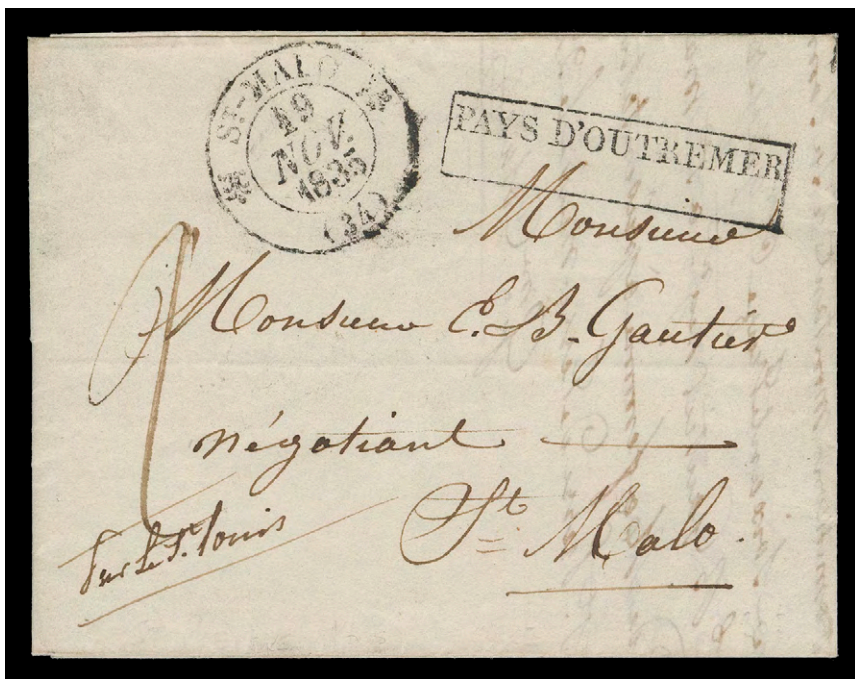 ST-MALO
19
NOV.
1835
(34)
PAYS D'OUTREMER
Monsieur
Monsieur E. B. Gautier
négotiant
St Malo.
Sur le St. Louis